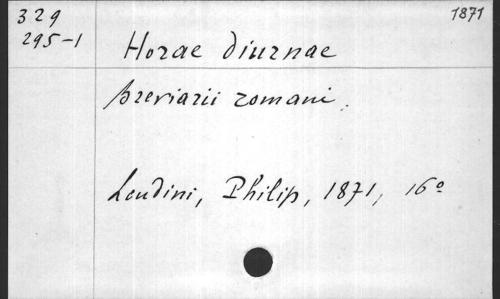 329
295-1
1871
Horae diurnae
breviarii romani.
Londini, Philip, 1871, 16º